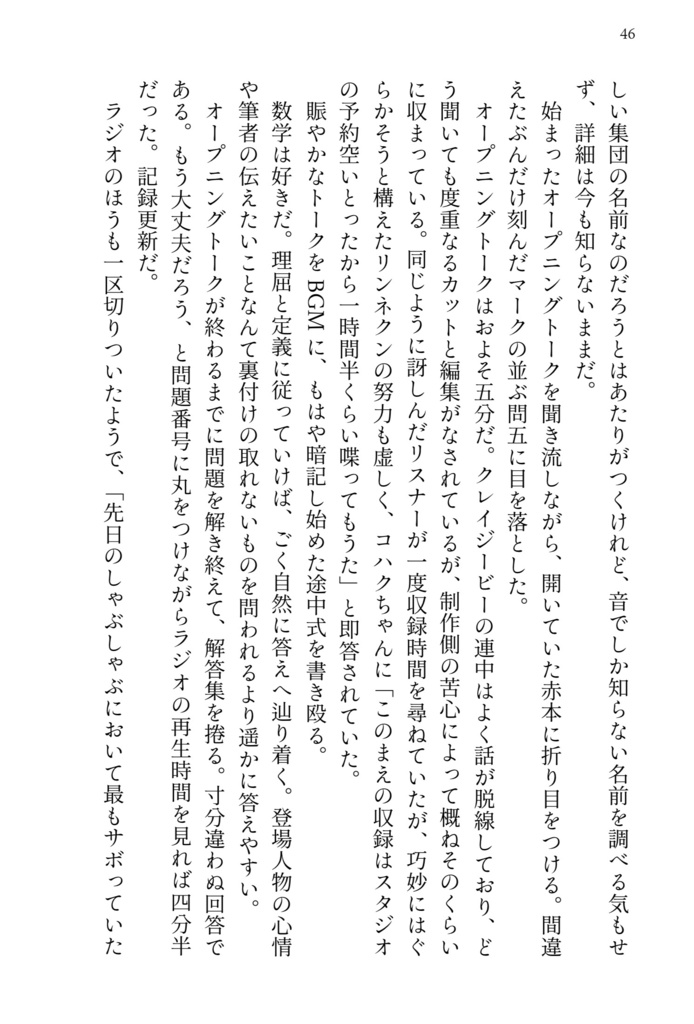 46
しい集団の名前なのだろうとはあたりがつくけれど、音でしか知らない名前を調べる気もせ
ず、詳細は今も知らないままだ。
始まったオープニングトークを聞き流しながら、開いていた赤本に折り目をつける。間違
えたぶんだけ刻んだマークの並ぶ問五に目を落とした。
オープニングトークはおよそ五分だ。クレイジービーの連中はよく話が脱線しており、ど
う聞いても度重なるカットと編集がなされているが、制作側の苦心によって概ねそのくらい
に収まっている。同じように訝しんだリスナーが一度収録時間を尋ねていたが、巧妙にはぐ
らかそうと構えたリンネクンの努力も虚しく、コハクちゃんに「このまえの収録はスタジオ
の予約空いとったから一時間半くらい喋ってもうた」と即答されていた。
賑やかなトークを BGM に、もはや暗記し始めた途中式を書き殴る。
数学は好きだ。理屈と定義に従っていけば、ごく自然に答えへ辿り着く。登場人物の心情
や筆者の伝えたいことなんて裏付けの取れないものを問われるより遥かに答えやすい。
オープニングトークが終わるまでに問題を解き終えて、解答集を捲る。寸分違わぬ回答で
ある。もう大丈夫だろう、と問題番号に丸をつけながらラジオの再生時間を見れば四分半
だった。記録更新だ。
ラジオのほうも一区切りついたようで、「先日のしゃぶしゃぶにおいて最もサボっていた